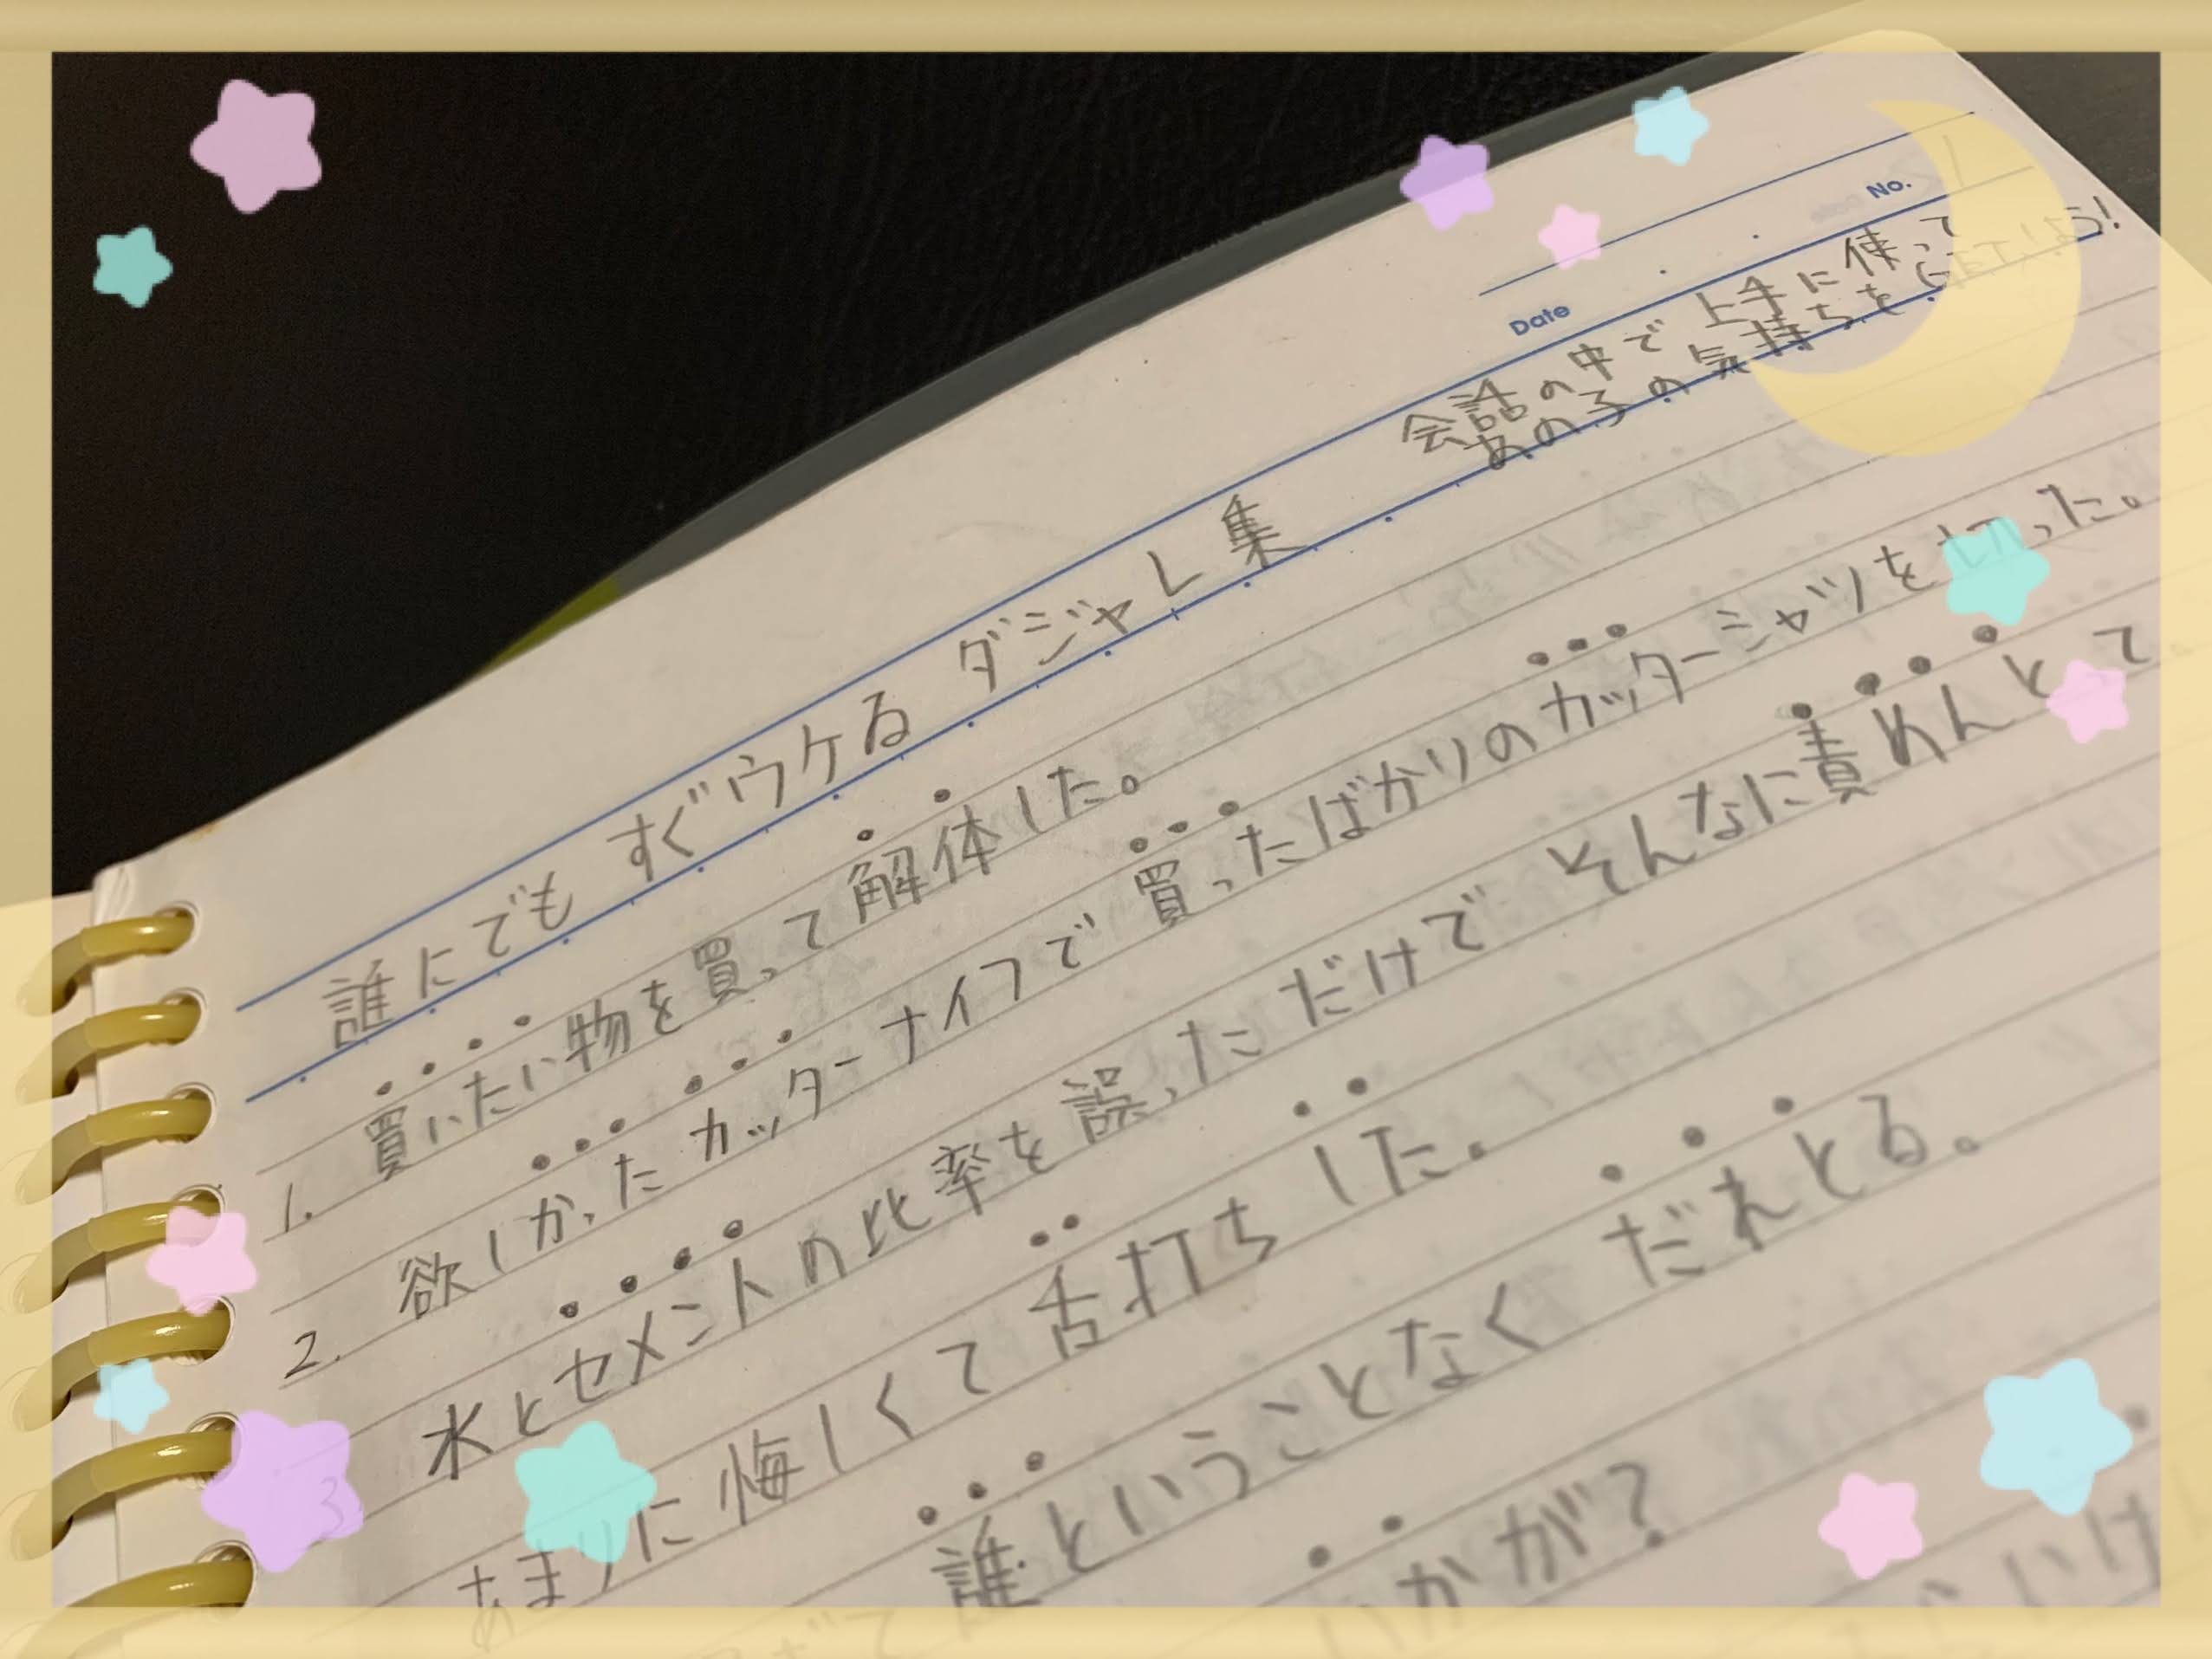 No.
Date
会話の中で上手に使って
あの子の気持ちを
誰にでも すぐウケる ダジャレ集
1. 買いたい物を買って解体した。
2. 欲しかったカッターナイフで買ったばかりのカッターシャツを切った。
3. 水とセメントの比率を誤っただけで そんなに責めんとて。
あまりに悔しくて舌打ちした。
誰ということなく だれとる。
いかが?